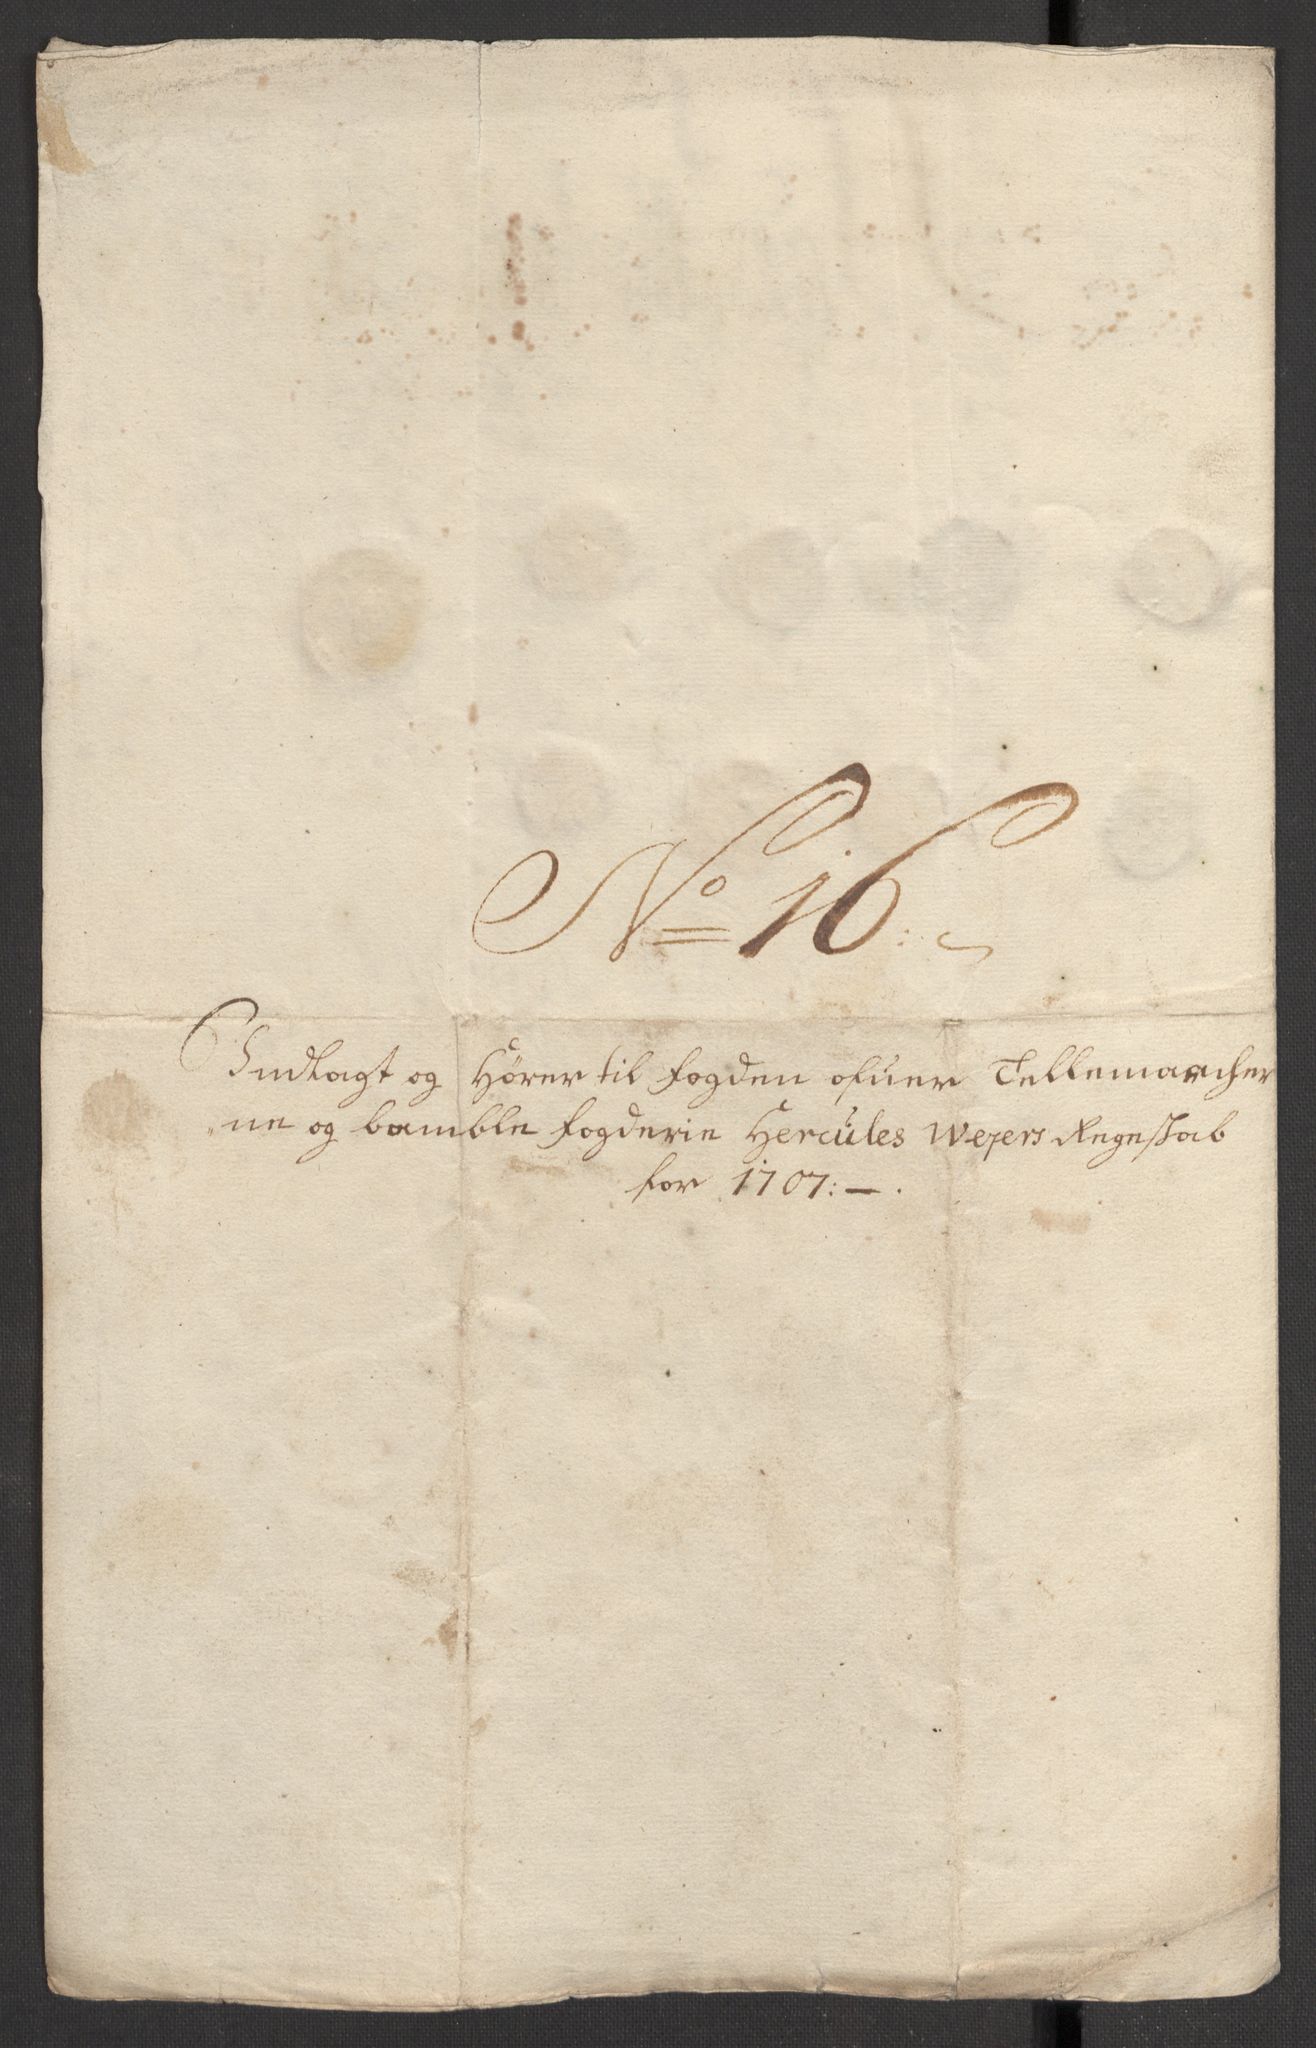 No 16:
Indlagt og Hører til fogden ofuer Tellemarcher
ne og bamble fogderie Hercules Weyers Regeskab
for 1707:—.